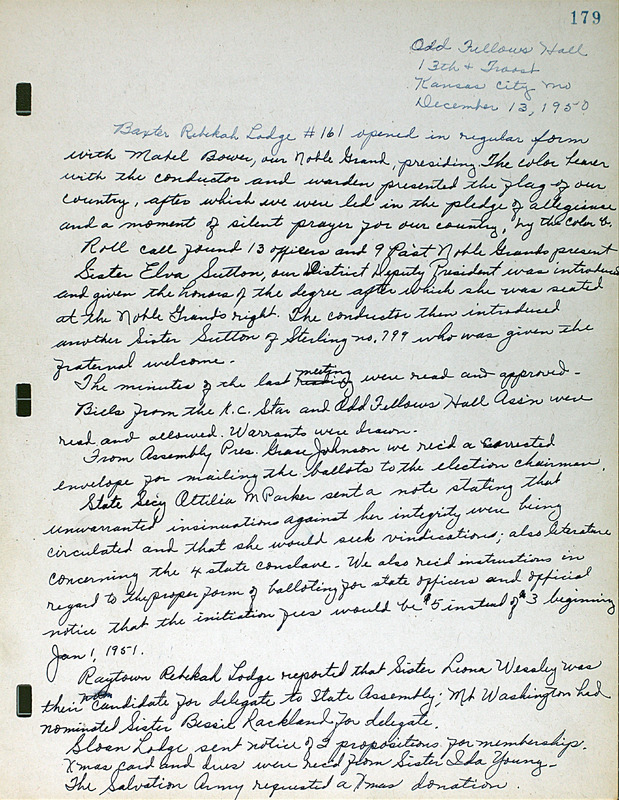 179
Odd Fellows Hall
13th & Troost
Kansas City Mo
December 13, 1950
Baxter Rebekah Lodge #161 opened in regular form
with Mabel Bower, our Noble Grand, presiding. The color bearer
with the conductor and warden presented the flag of our
country, after which we were led in the pledge of allegiense
and a moment of silent prayer for our country, by the color b.
Roll call found 13 officers and 9 Past Noble Grands present
Sister Elva Sutton, our District Deputy President was introduced
and given the honors of the degree after which she was seated
at the Noble Grands right. The conductor then introduced
another Sister Sutton of Sterling no. 799 who was given the
fraternal welcome.
The minutes of the last meeting were read and approved.
Bills from the K.C. Star and Odd Fellows Hall Ass'n were
read and allowed. Warrants were drawn.
From Assembly Pres. Grace Johnson we rec'd a corrected
envelope for mailing the ballots to the election chairman.
State Secy Ottilia M Parker sent a note stating that
unwarranted insinuations against her integrity were being
circulated and that she would seek vindications; also literature
concerning the 4 state conclave. We also rec'd instructions in
regard to the proper form of balloting for state officers and official
notice that the initiation fees would be $5 instead of $3 beginning
Jan 1, 1951.
Raytown Rebekah Lodge reported that Sister Leona Wessley was
their candidate for delegate to State Assembly; Mt Washington had
nominated Sister Bessie Rackland for delegate.
Sloan Lodge sent notice of propositions for membership.
Xmas card and dues were rec'd from Sister Ida Young.
The Salvation Army requested a Xmas donation.